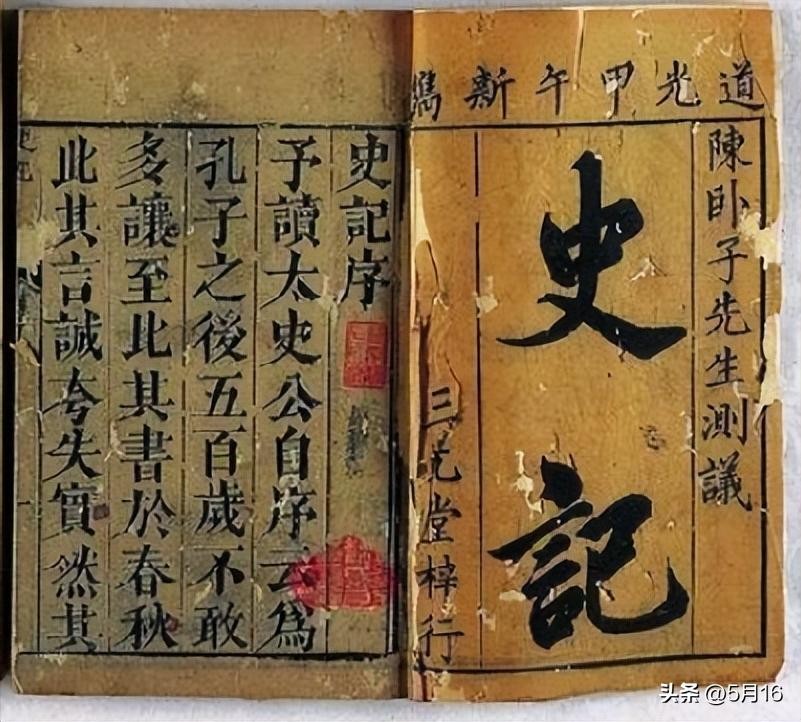 道光甲午新鐫
陳卧子先生測議
史記
三元堂梓行
史記序
予讀太史公自序云為
孔子之後五百歲不敢
多讓至此其書於春秋
此其言誠夸失實然其
头条 @5月16